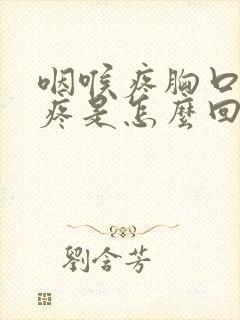 咽喉疼胸口
疼是怎麼回
劉含芳